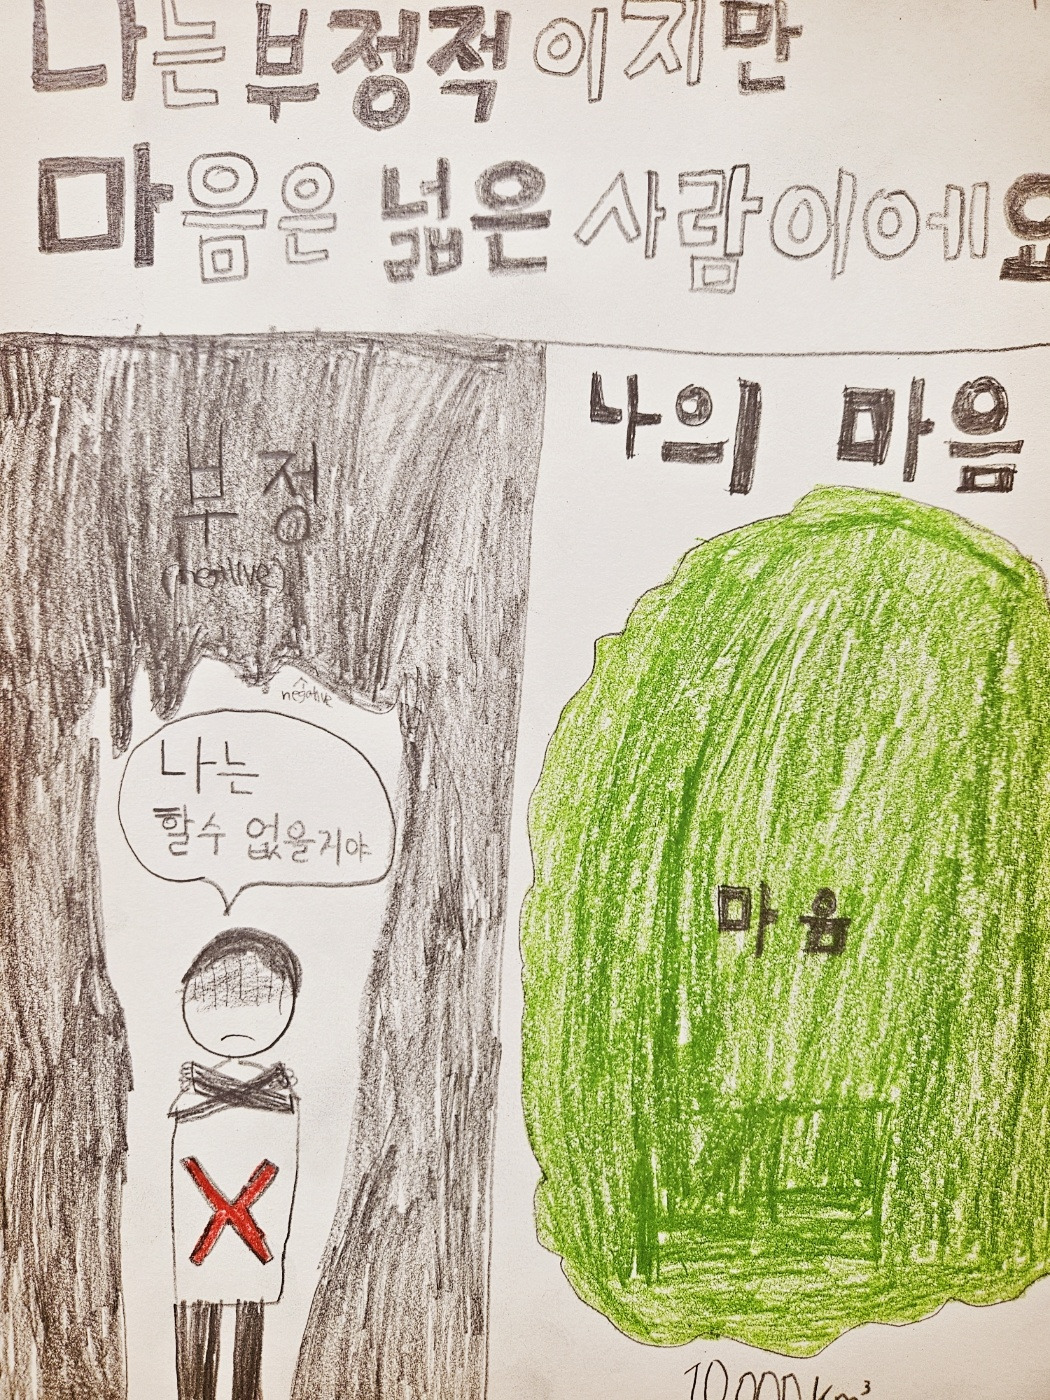 나는 부정적이지만
마음은 넓은 사람이에요
부정
(negative)
negative
나는
할수 없을거야
나의 마음
마음
10,000 Km³